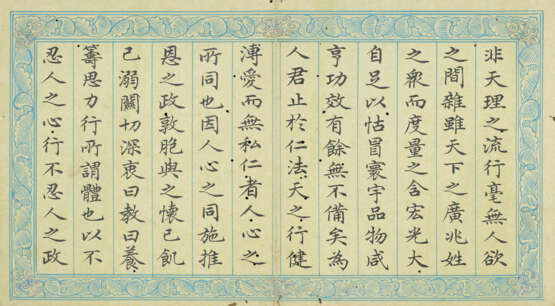 非天理之流行毫無人欲
之間雜雖天下之廣兆姓
之衆而度量之含宏光大
自足以怙冒寰宇品物咸
亨功效有餘無不備矣為
人君止於仁法天之行健
溥愛而無私仁者人心之
所同也因人心之同施推
恩之政敦胞與之懷已飢
己溺關切深衷曰教曰養
籌思力行所謂體也以不
忍人之心行不忍人之政